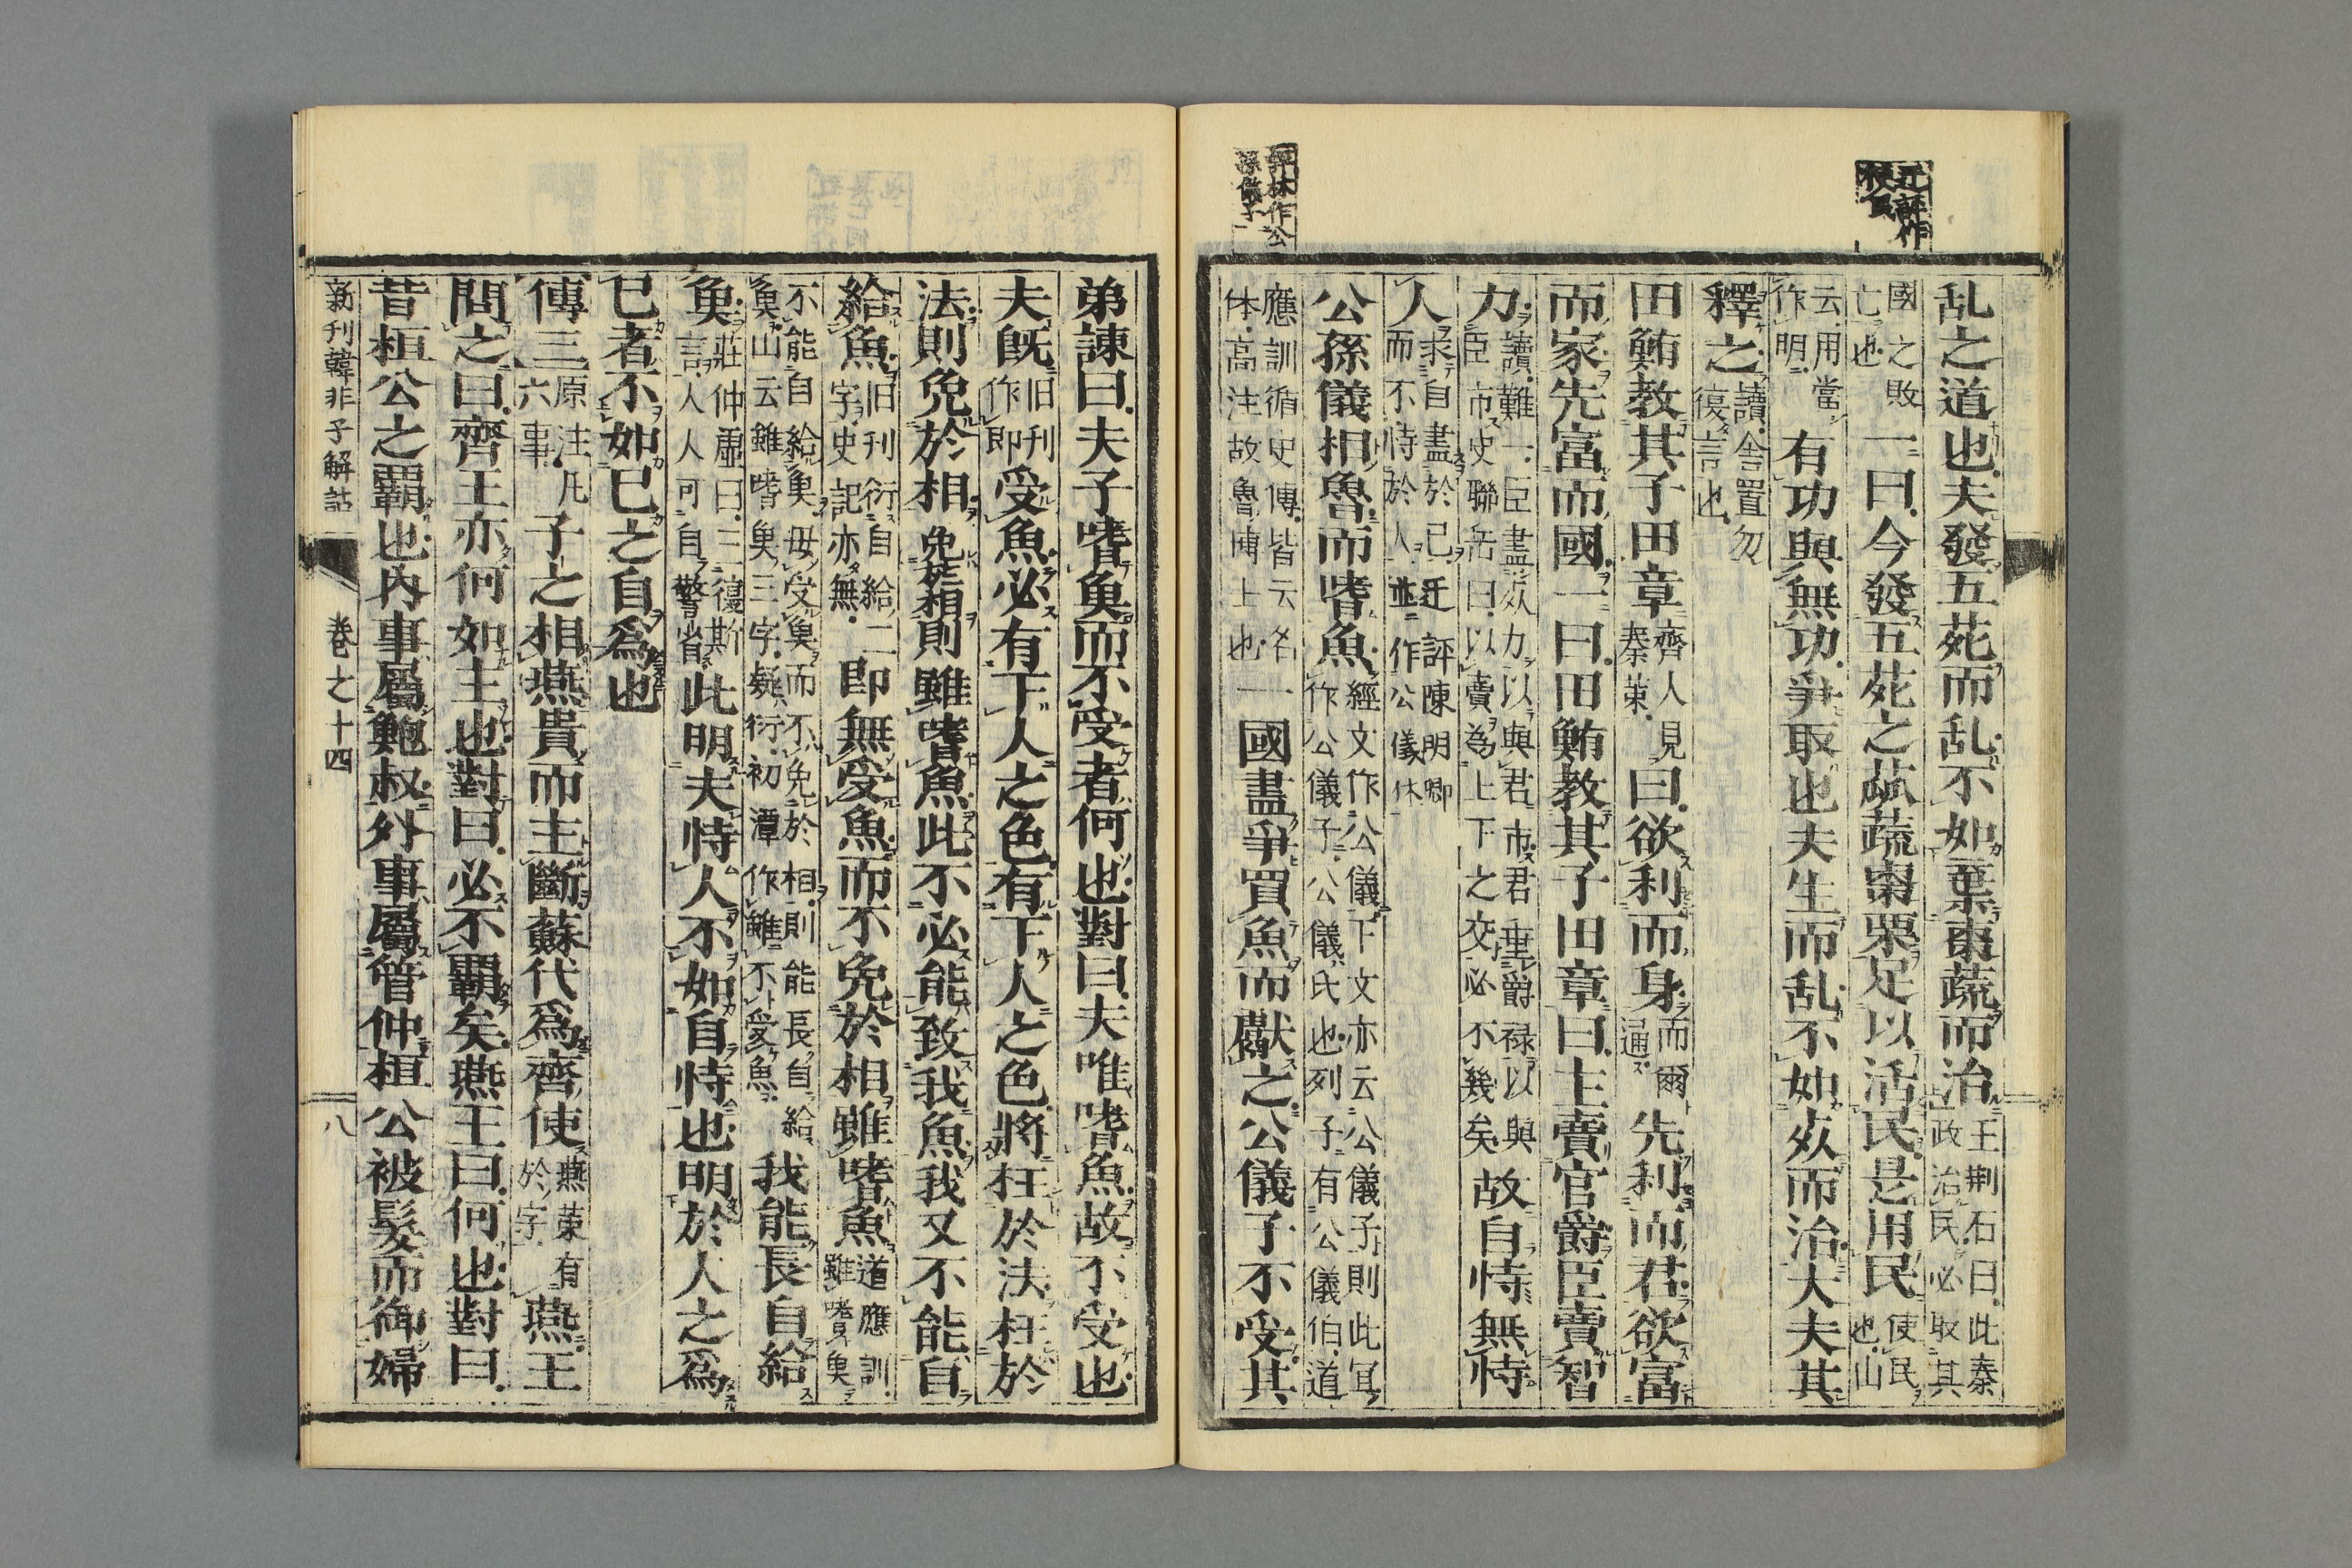 乱之道也夫發五苑而乱不如棄棗蔬而治王荆石曰此秦政治民必取其
國之敗亡也一曰今發五苑之蓏蔬棗栗足以活民是用民使民也山
云用當作明有功與無功爭取也夫生而乱不如死而治大夫其
釋之讀舍置勿復言也
田鮪教其子田章齊人見秦策曰欲利而身而爾通先利而君欲富
而家先富而國一曰田鮪教其子田章曰主賣官爵臣賣智
力讀難一臣盡死力以與君市君垂爵禄以與臣市史聯岳曰以賣為上下之交必不幾矣故自恃無恃
人求自盡於己而不恃於人迂評陳明卿並作公儀休
公孫儀相魯而嗜魚經文作公儀下文亦云公儀子則此冝作公儀子公儀氏也列子有公儀伯道
應訓循史傳皆云名休高注故魯博士也一國盡爭買魚而獻之公儀子不受其
弟諫曰夫子嗜魚而不受者何也對曰夫唯嗜魚故不受也
夫既旧刊作即受魚必有下人之色有下人之色將枉於法枉於
法則免於相免於相則雖嗜魚此不必能致我魚我又不能自
給魚旧刊衍自給二字史記亦無即無受魚而不免於相雖嗜魚道應訓雖嗜魚
不能自給魚毋受魚而不免於相則能長自給魚山云雖嗜魚三字疑衍初潭作雖不受魚我能長自給
魚莊仲虛曰三復斯言人人可自警省此明夫恃人不如自恃也明於人之爲
已者不如已之自爲也
傳三原注凡六事子之相燕貴而主斷蘇代爲齊使燕策有於字燕王
問之曰齊王亦何如主也對曰必不覇矣燕王曰何也對曰
昔桓公之覇也内事屬鮑叔外事屬管仲桓公被髮而御婦
新刊韓非子解詁
卷之十四
八